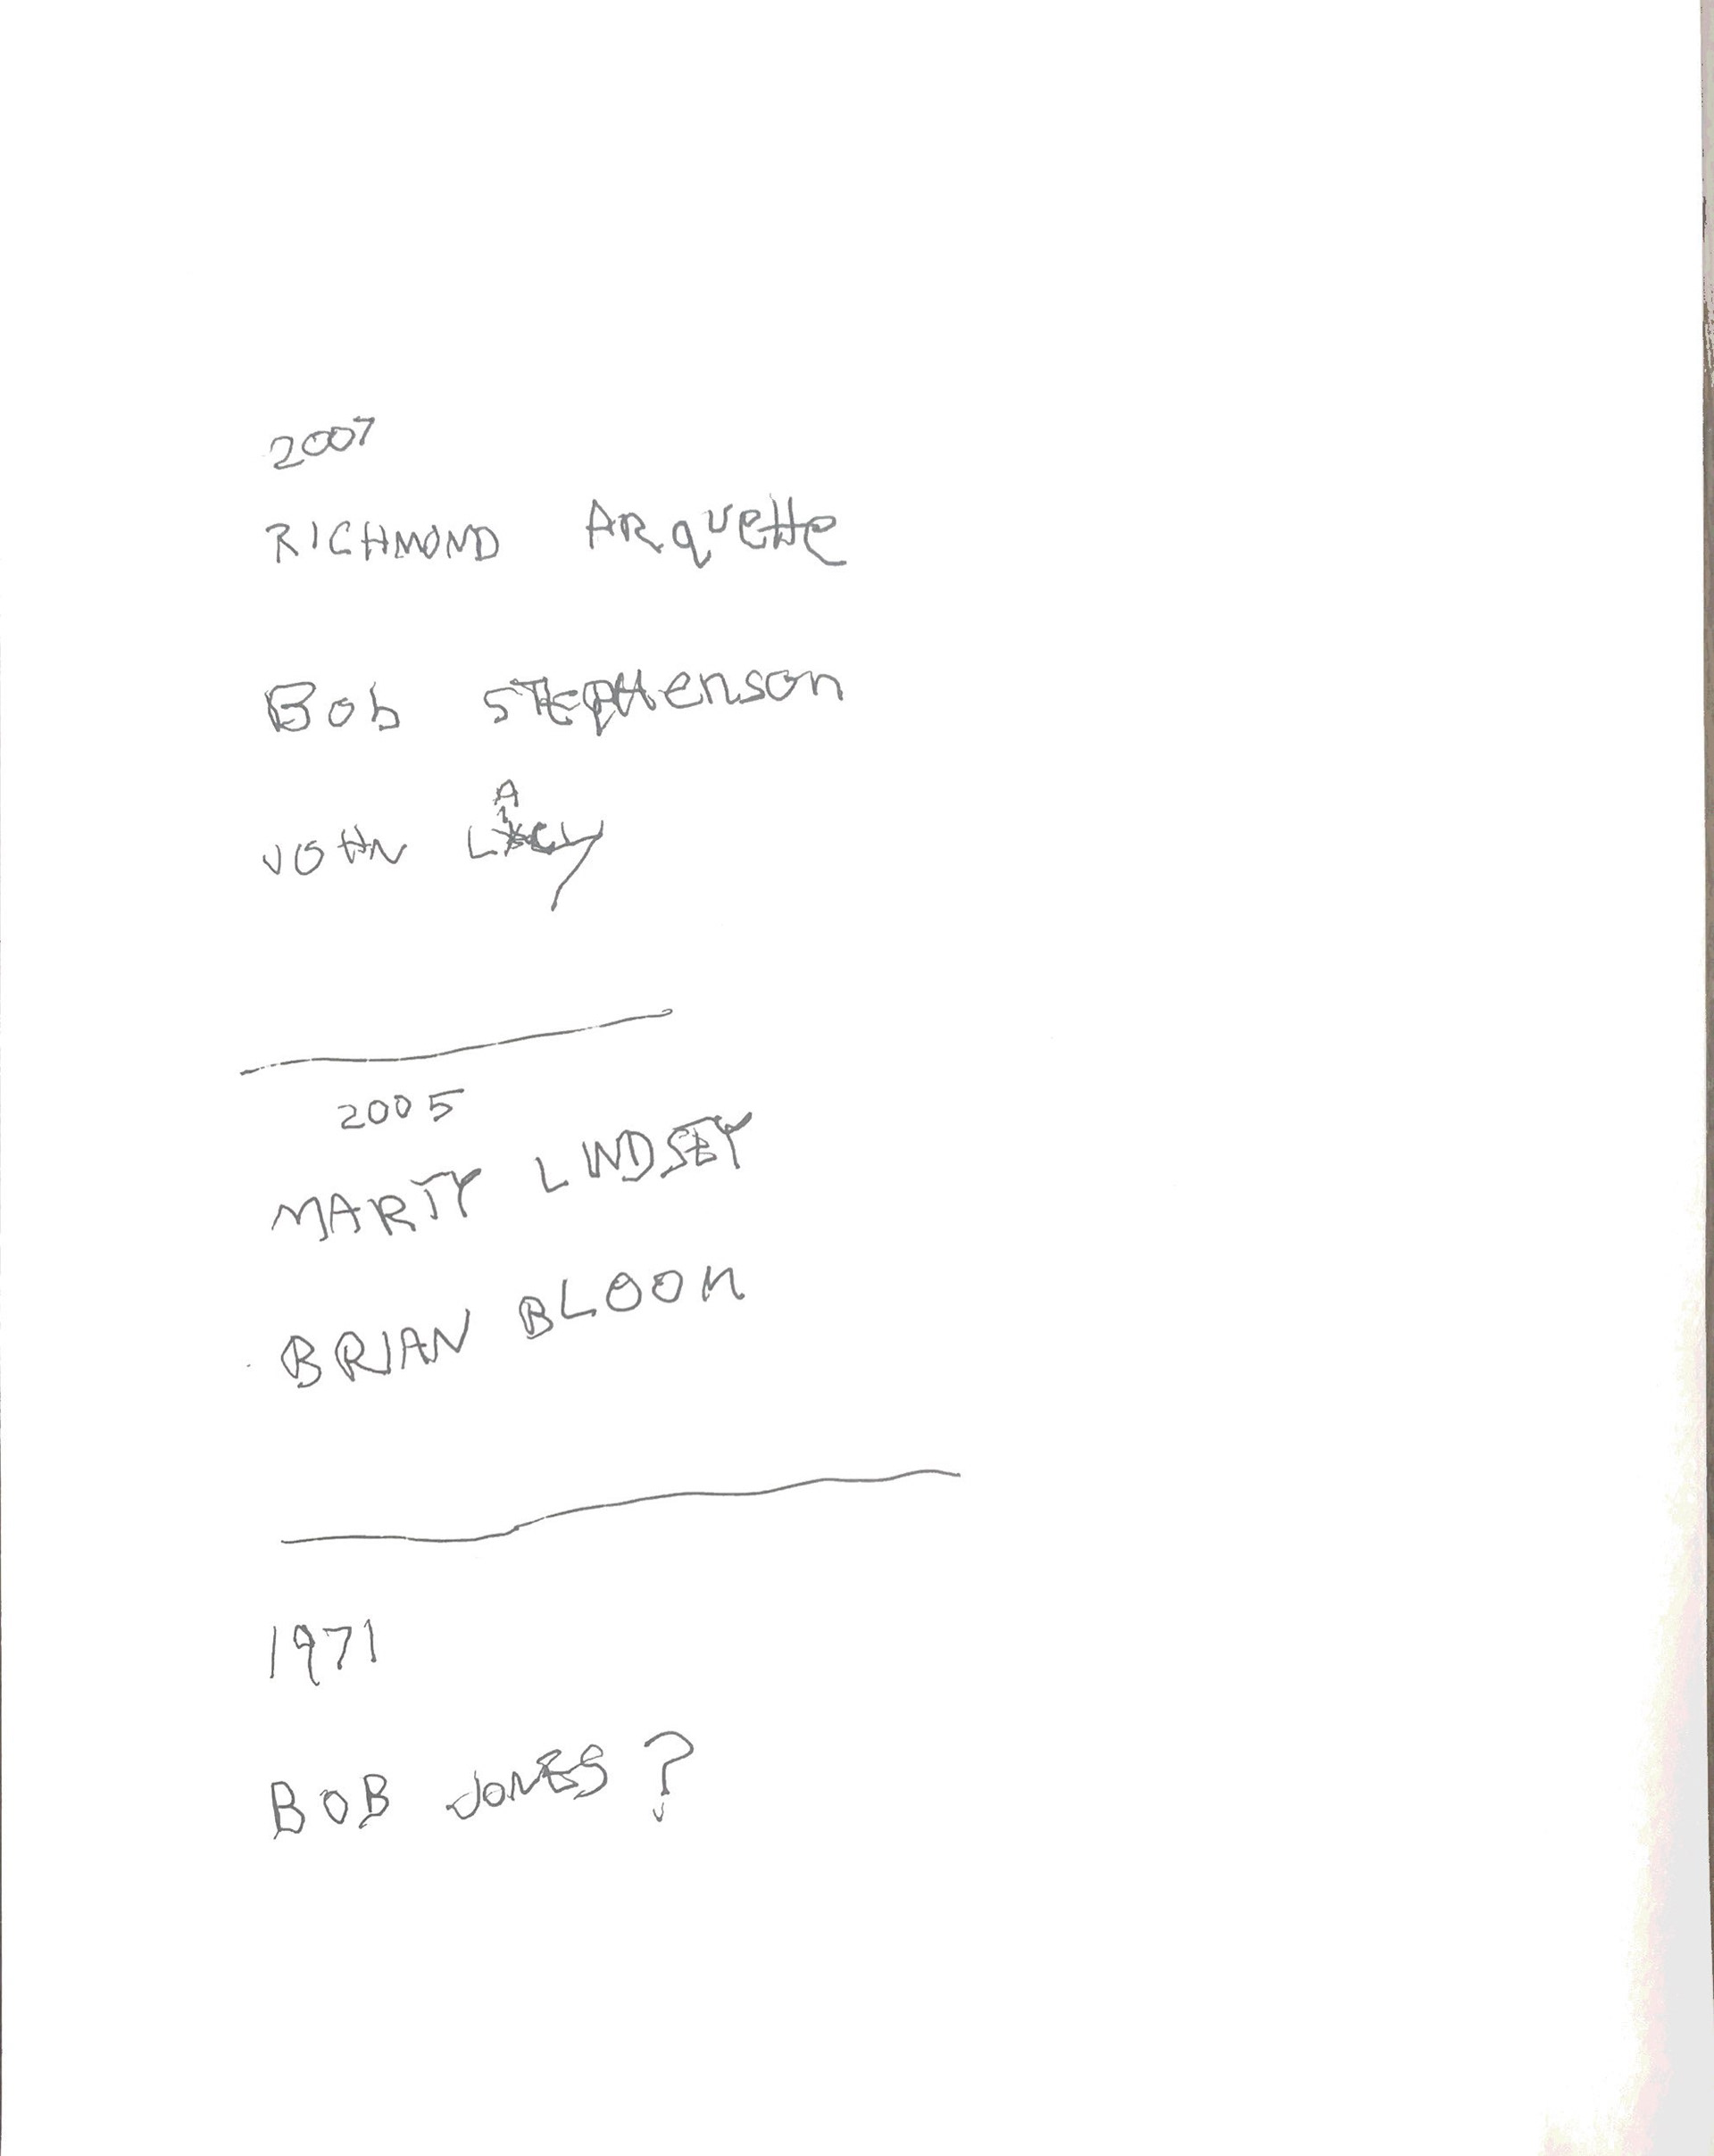 2007
RICHMOND ARquette
Bob STEPHenson
JOHN LACY
2005
MARTY LINDSEY
BRIAN BLOOM
1971
BOB JONES?